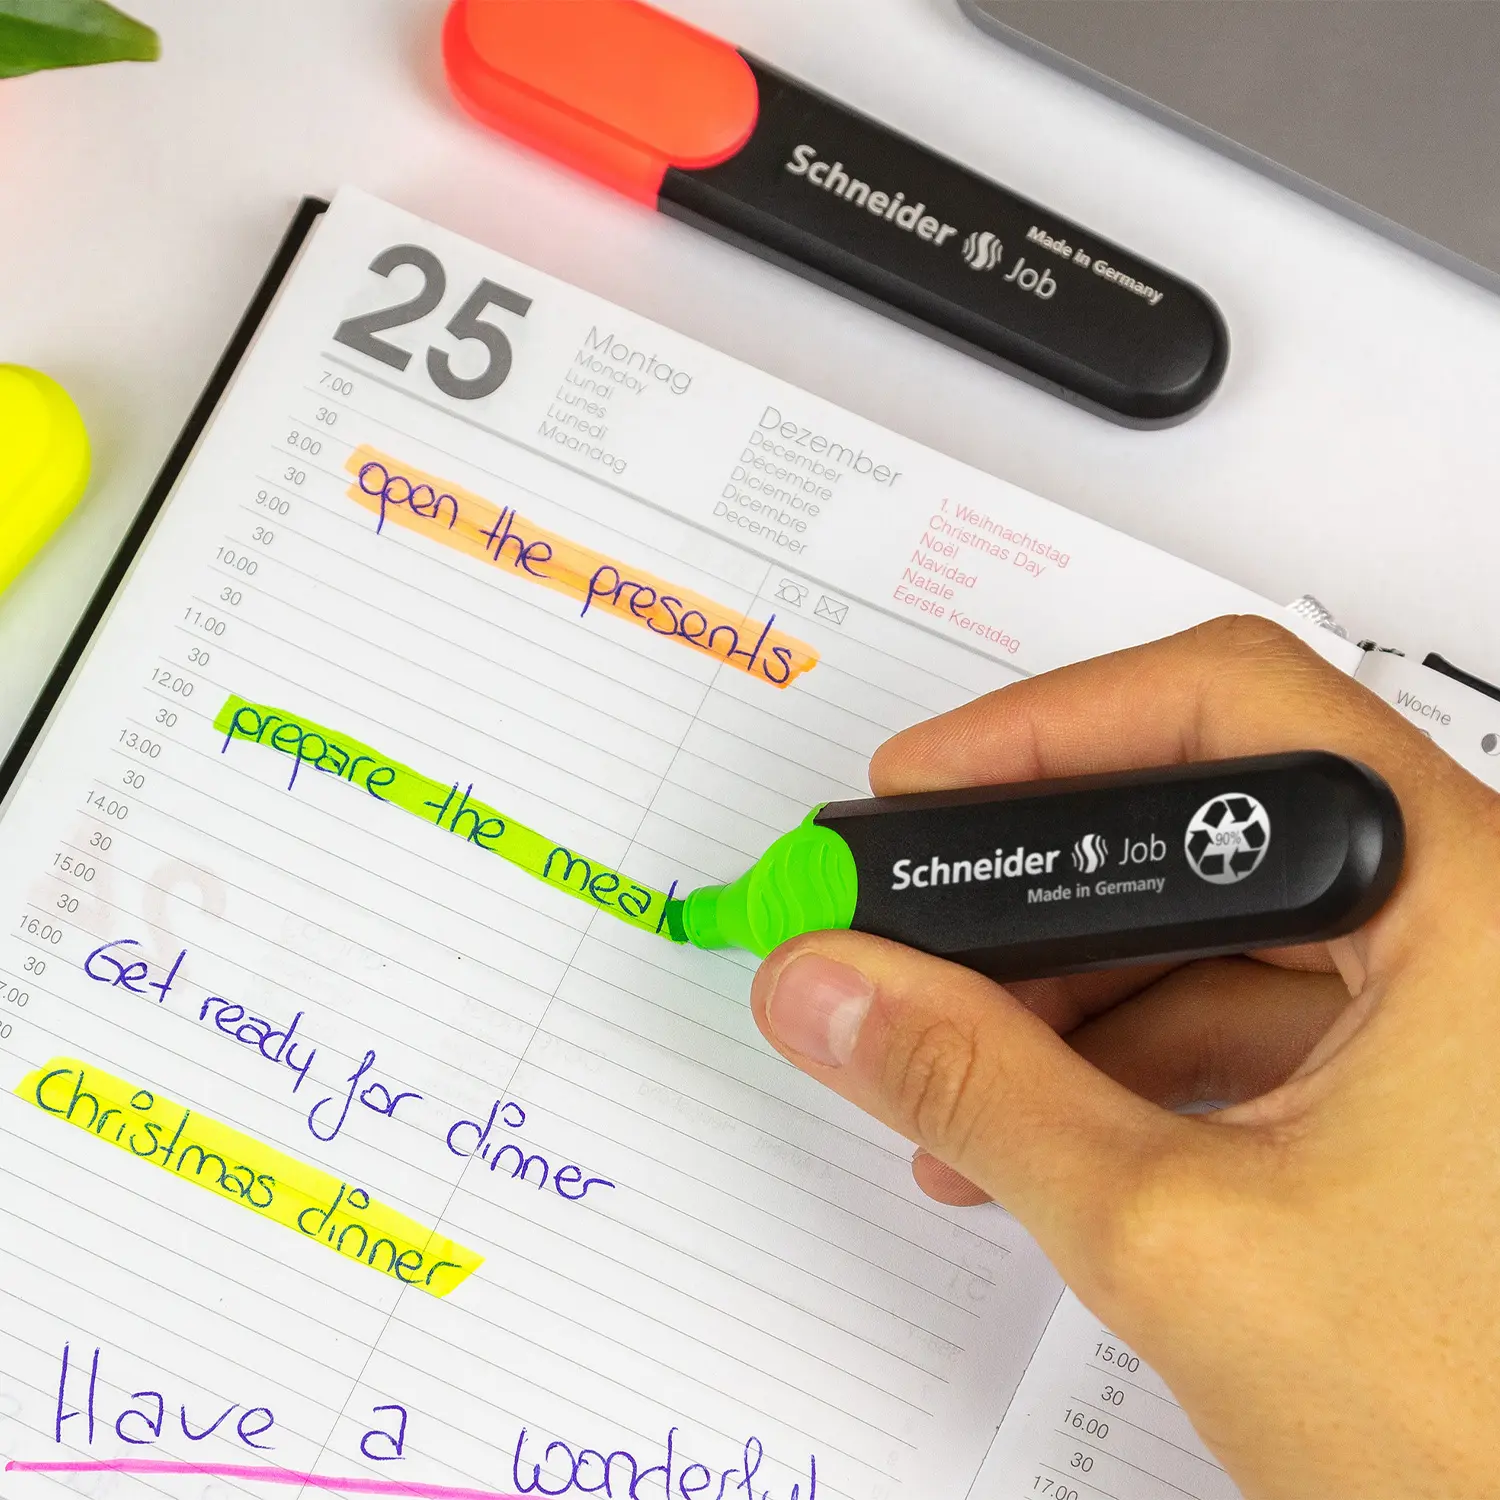 Schneider Job
Made in Germany
25
Montag
Monday
Lundi
Lunes
Lunedi
Maandag
Dezember
December
Décembre
Diciembre
Dicembre
December
1. Weihnachtstag
Christmas Day
Noël
Navidad
Natale
Eerste Kerstdag
7.00
30
8.00
open the presents
30
9.00
30
10.00
30
11.00
30
12.00
prepare the meal
30
13.00
30
14.00
30
15.00
30
16.00
Get ready for dinner
30
Christmas dinner
Have a wonderful
Schneider Job
Made in Germany
90%
Woche
15.00
30
16.00
30
17.00